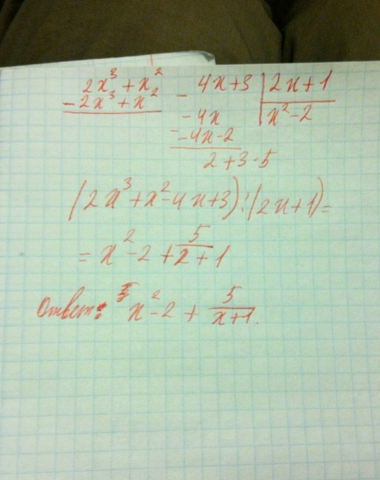 2x³ + x² - 4x+3 | 2x+1
- 2x³ + x² - 4x | x² - 2
- -4x-2
2+3=5
(2x³+x²-4x+3):(2x+1)=
= x²-2 + 5/x+1
Ответ: x²-2 + 5/x+1.